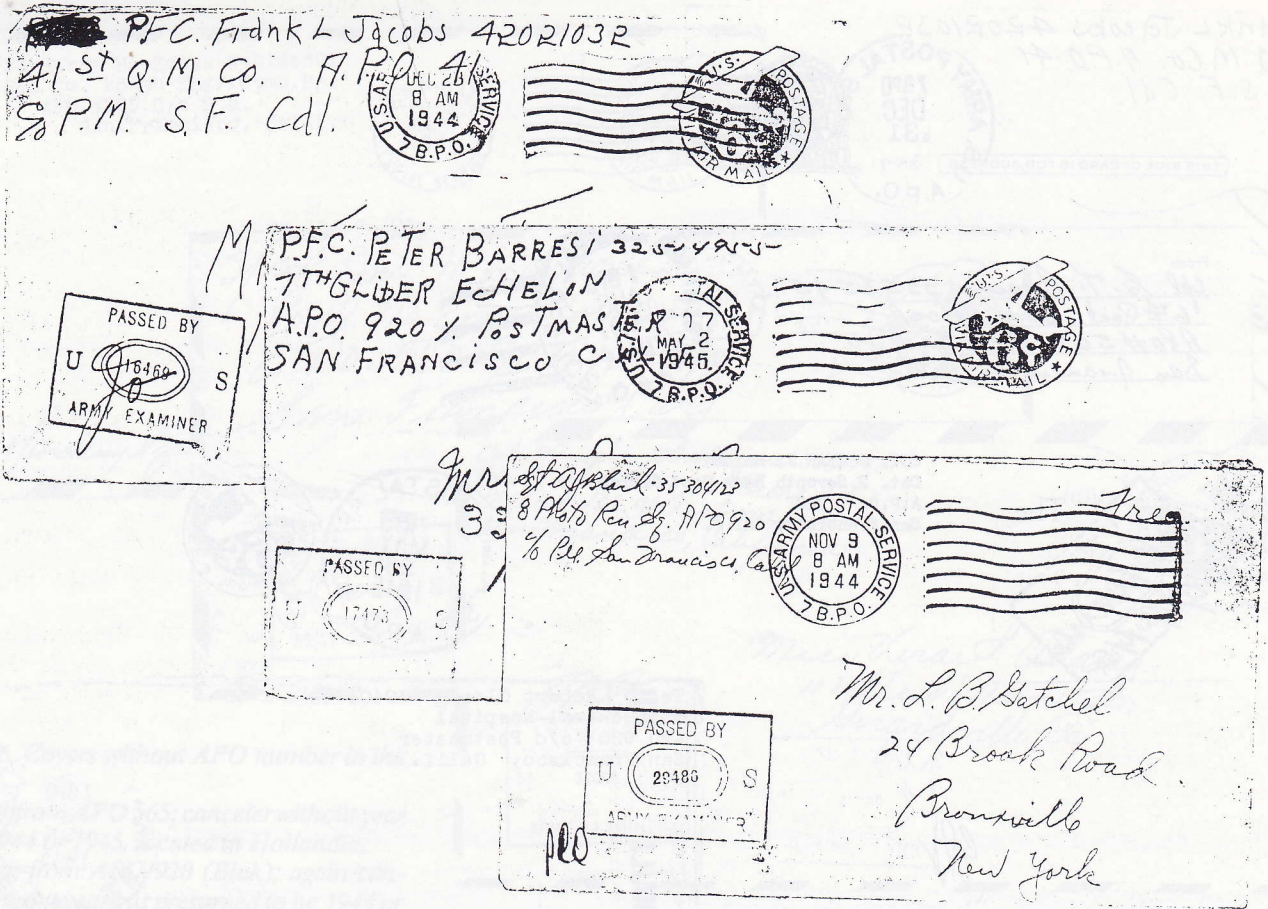 P.F.C. Frank L Jacobs 42021032
41st Q.M. Co. A.P.O. 41
c/o P.M. S.F. Cal.
8 AM
1944
SERVICE
7 B.P.O.
U.S. POSTAGE
AIR MAIL
PASSED BY
U 16469 S
ARMY EXAMINER
P.F.C. PETER BARRESI
7TH GLIDER ECHELON
A.P.O. 920 % POSTMASTER
SAN FRANCISCO CALIF.
MAY 2
1945
U.S. POSTAL SERVICE
7 B.P.O.
U.S. POSTAGE
AIR MAIL
Mr
PASSED BY
U 17473 S
Sgt 35304123
8 Photo Rcn Sq. APO 920
c/o P.M. San Francisco, Calif
U.S. ARMY POSTAL SERVICE
NOV 9
8 AM
1944
7 B.P.O.
Free
Mr. L. B. Gatchel
24 Brook Road
Bronxville
New York
PASSED BY
U 29486 S
ARMY EXAMINER